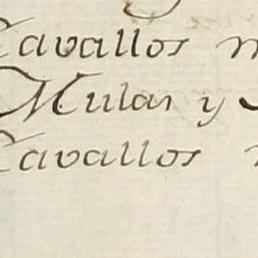 Cavallos
Mulas y
Cavallos